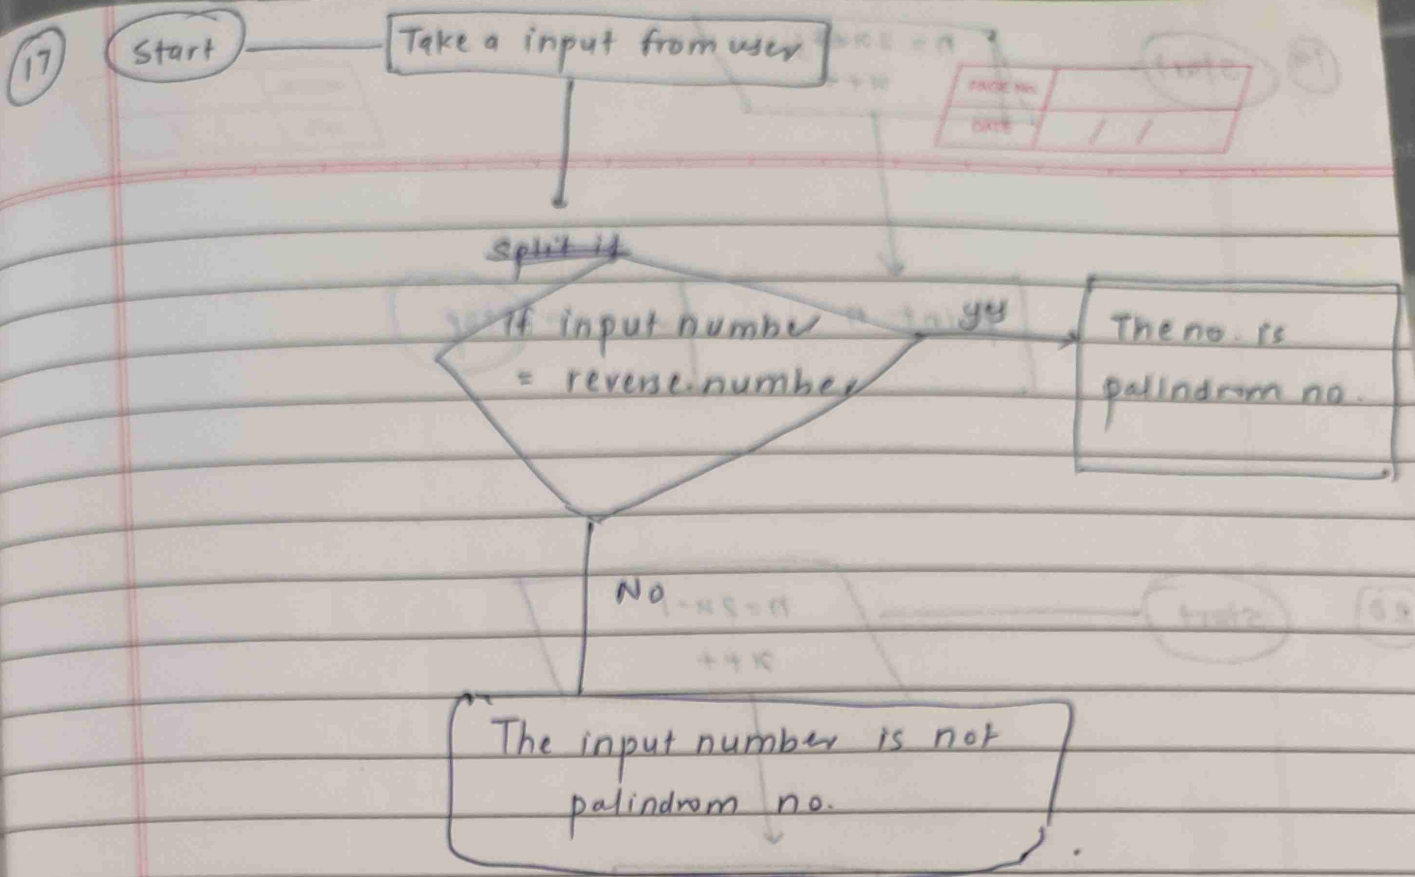 17
Start
Take a input from user
PAGE No.
DATE / /
split it
if input number
= reverse number
yes
The no. is
palindrom no.
No
The input number is not
palindrom no.